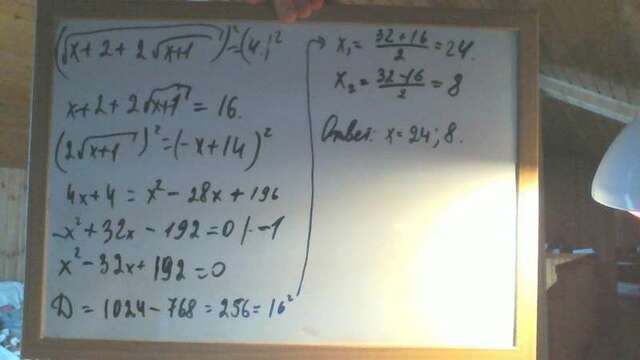 (√(x+2+2√(x+1)))² = (4.)²
x+2+2√(x+1) = 16.
(2√(x+1))² = (-x+14)²
4x+4 = x² - 28x + 196
-x² + 32x - 192 = 0 |· -1
x² - 32x + 192 = 0
D = 1024 - 768 = 256 = 16²
→ x₁ = (32+16)/2 = 24.
x₂ = (32-16)/2 = 8
Ответ: x = 24; 8.